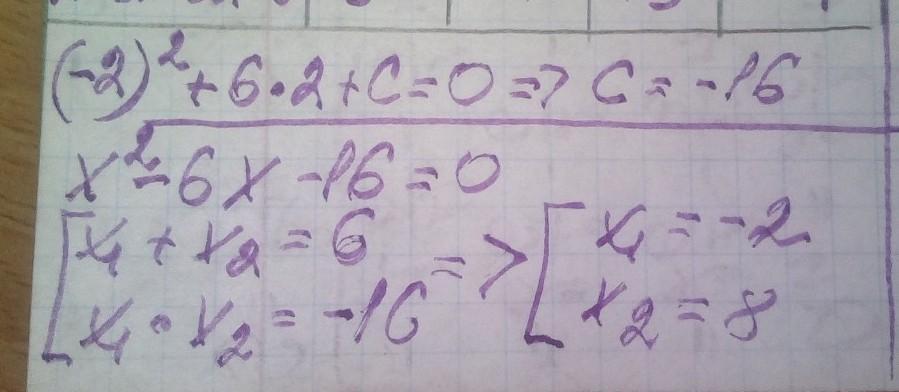 (-2)² + 6·2 + C = 0 => C = -16
x² - 6x - 16 = 0
[ x₁ + x₂ = 6
x₁ · x₂ = -16 => [ x₁ = -2
x₂ = 8